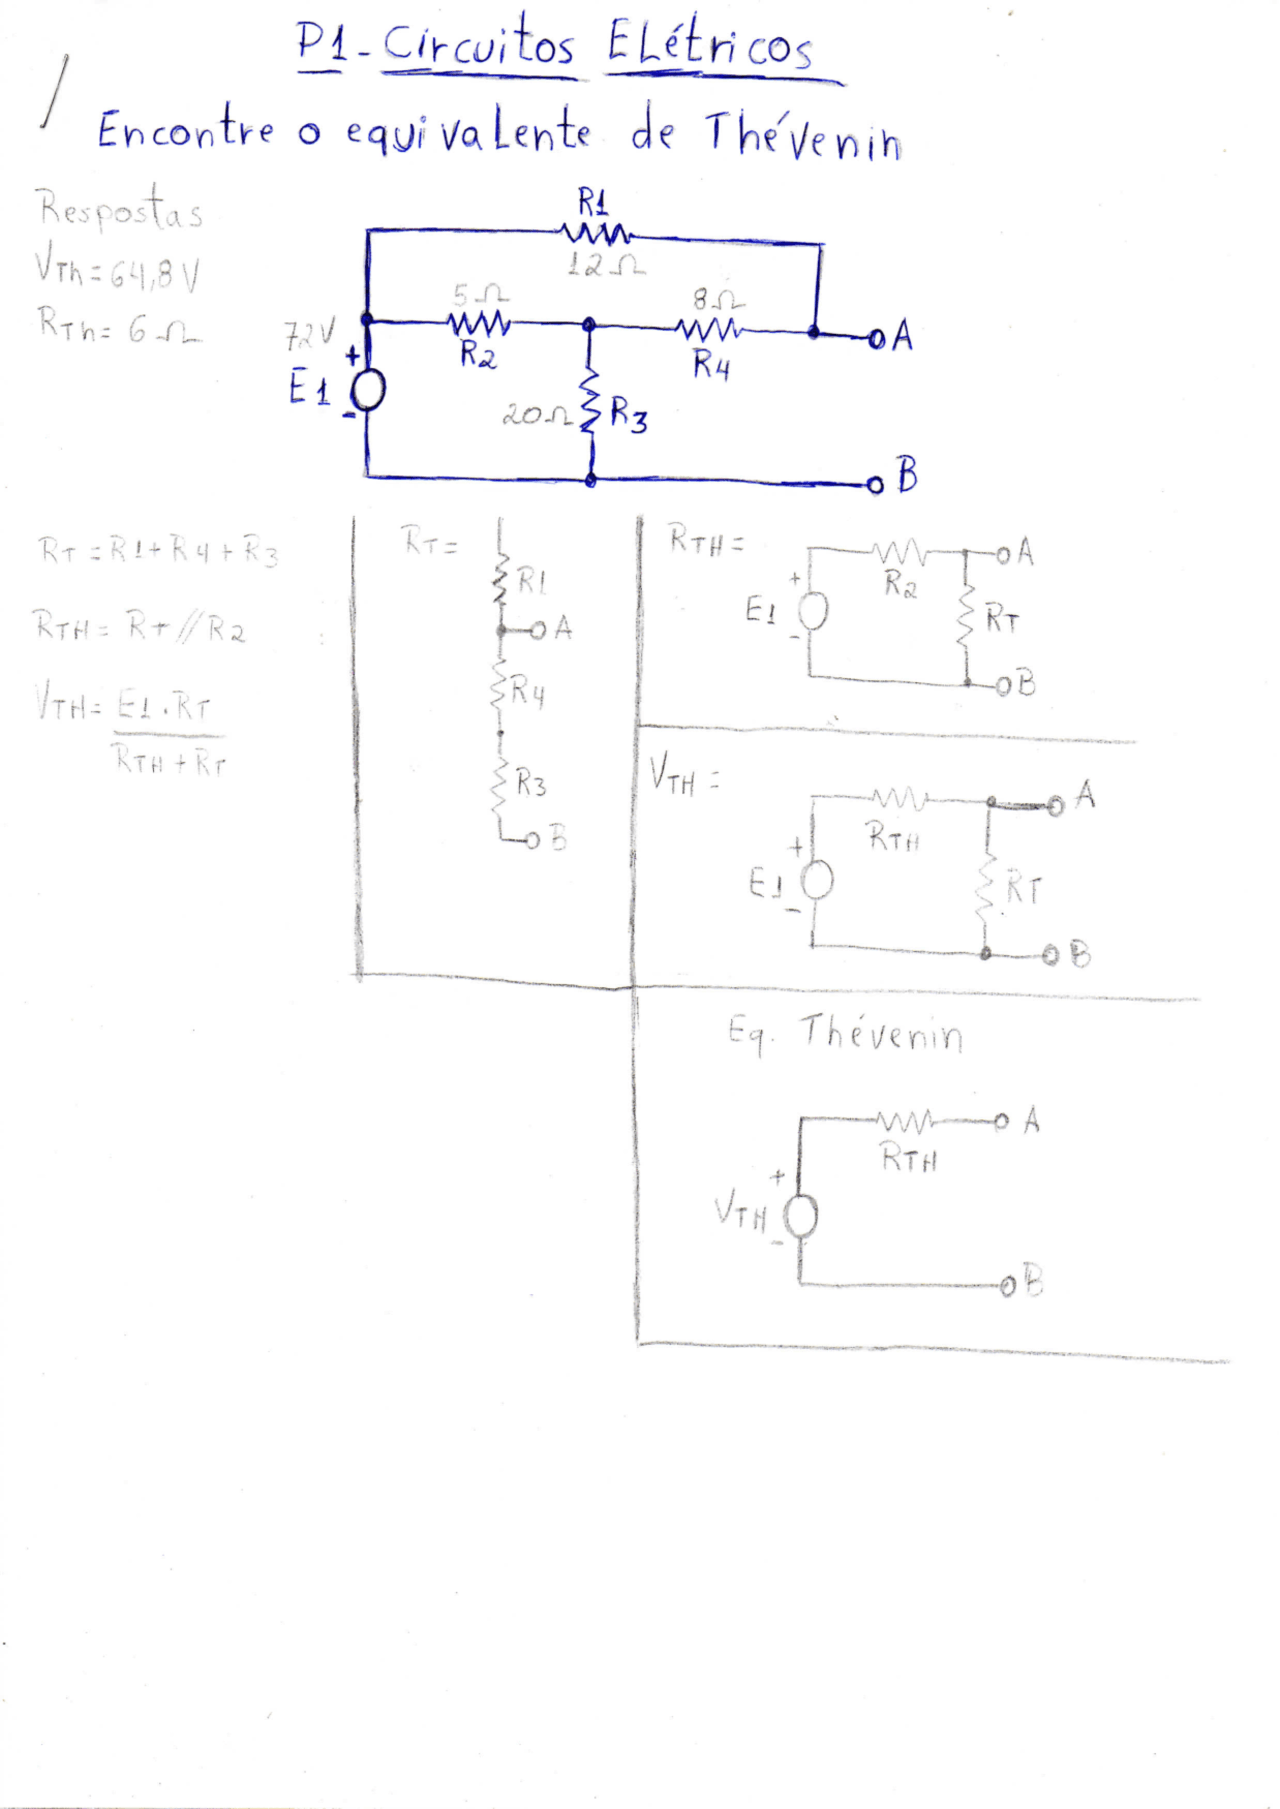 P1 - Circuitos Elétricos
/
Encontre o equivalente de Thévenin
Respostas
VTh = 64,8 V
RTh = 6 Ω
R1
12 Ω
5 Ω
R2
8 Ω
R4
A
72V
+
E1
-
20 Ω
R3
B
RT = R1 + R4 + R3
RTH = RT // R2
VTH = E1 . RT
RTH + RT
RT =
R1
A
R4
R3
B
RTH =
R2
A
+
E1
-
RT
B
VTH =
RTH
A
+
E1
-
RT
B
Eq. Thévenin
RTH
A
+
VTH
-
B